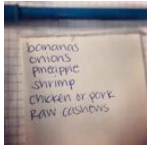 bananas
onions
pineapple
shrimp
chicken or pork
Raw cashews